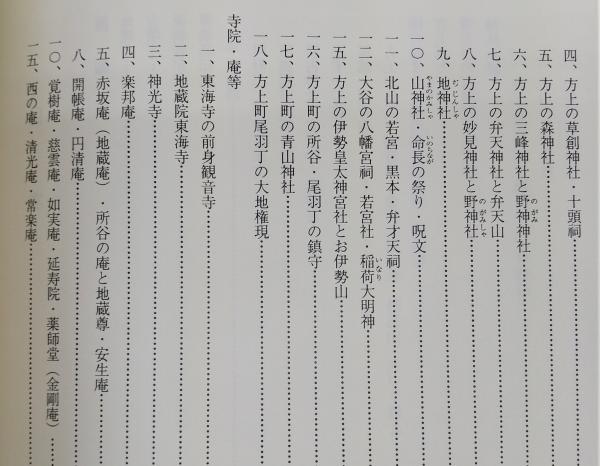 四、方上の草創神社・十頭祠
五、方上の森神社
六、方上の三峰神社と野神神社
のがみ
七、方上の弁天神社と弁天山
八、方上の妙見神社と野神社
のがみしゃ
九、地神社
ぢじんしゃ
一〇、山神社・命長の祭り・呪文
やまのかみしゃ いのちなが
一一、北山の若宮・黒本・弁才天祠
一二、大谷の八幡宮祠・若宮社・稲荷大明神
いなり
一五、方上の伊勢皇太神宮社とお伊勢山
一六、方上町の所谷・尾羽丁の鎮守
一七、方上町の青山神社
一八、方上町尾羽丁の大地権現
寺院・庵等
一、東海寺の前身観音寺
二、地蔵院東海寺
三、神光寺
四、楽邦庵
五、赤坂庵（地蔵庵）・所谷の庵と地蔵尊・安生庵
八、開帳庵・円清庵
一〇、覚樹庵・慈雲庵・如実庵・延寿院・薬師堂（金剛庵）
一五、西の庵・清光庵・常楽庵